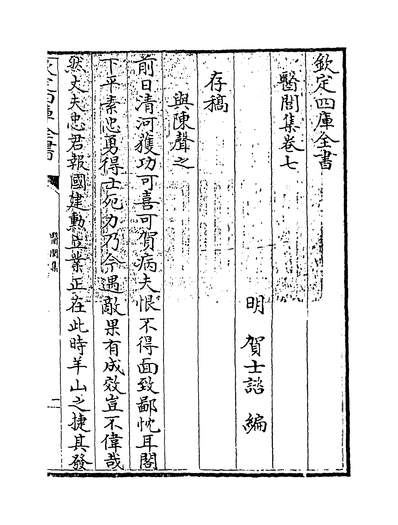 欽定四庫全書
醫閭集卷七
明 賀士諮 編
存稿
與陳聲之
前日清河獲功可喜可賀病夫恨不得面致鄙忱耳閣
下平素忠勇得士死力乃今遇敵果有成效豈不偉哉
然丈夫忠君報國建勳立業正在此時羊山之捷其發
欽定四庫全書
醫閭集
一